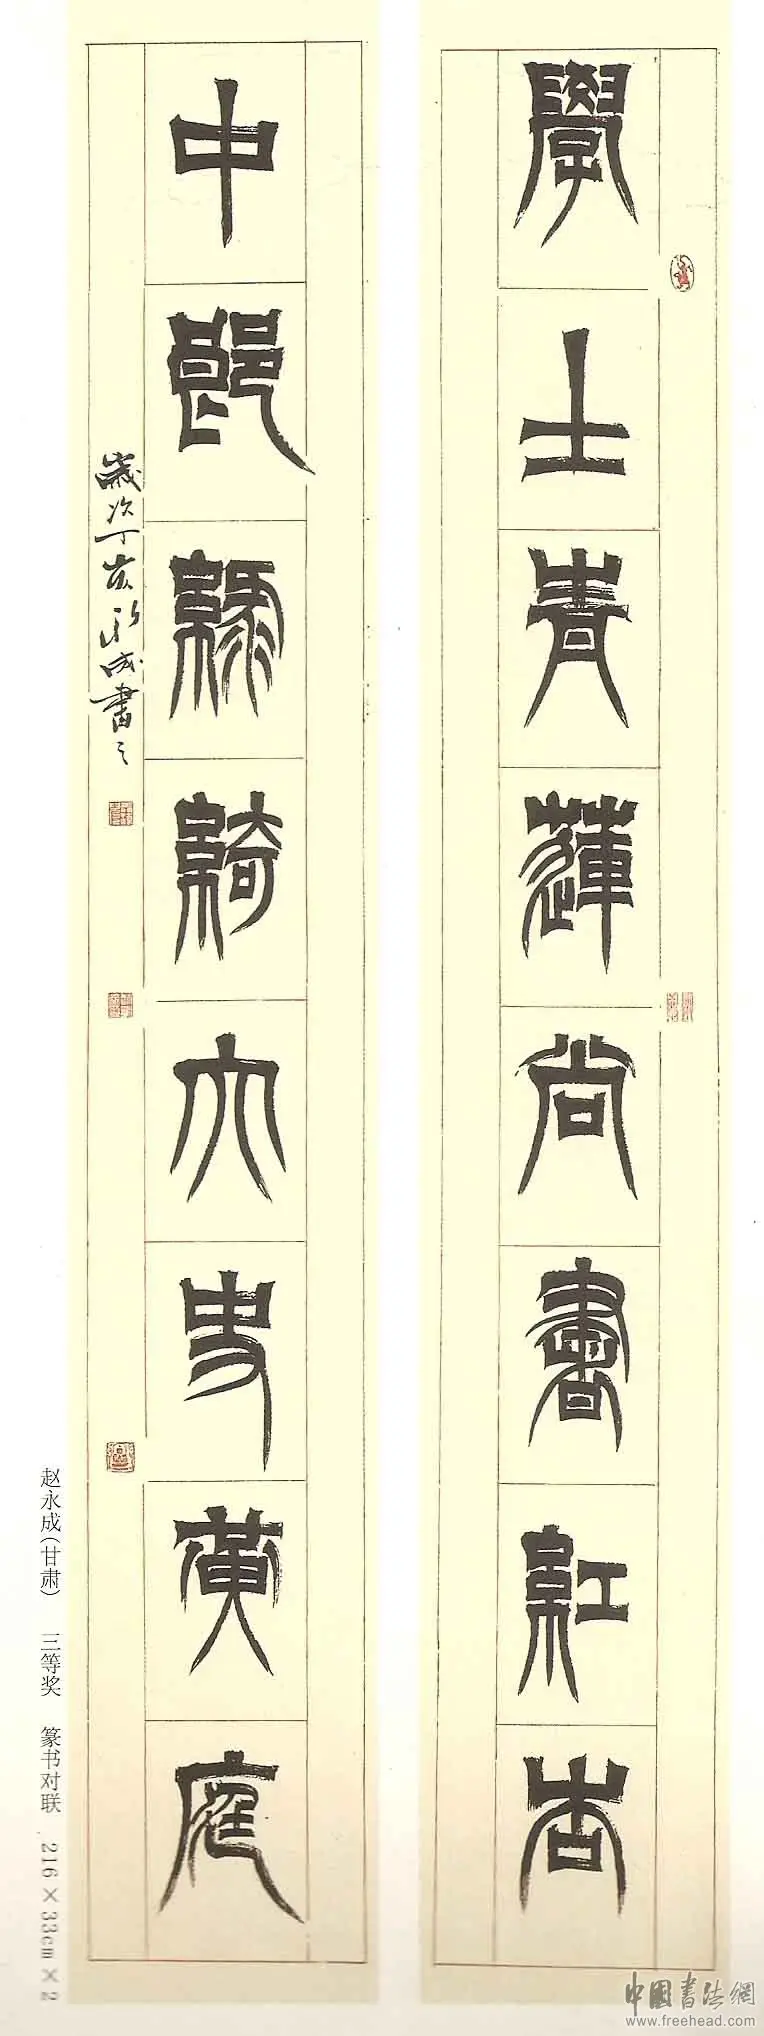 學士青蓮尚書紅杏
中郎綠綺大史黃庭
歲次丁亥永成書之
赵永成(甘肃) 三等奖 篆书对联 216×33cm×2
中國書法網
www.freehead.com